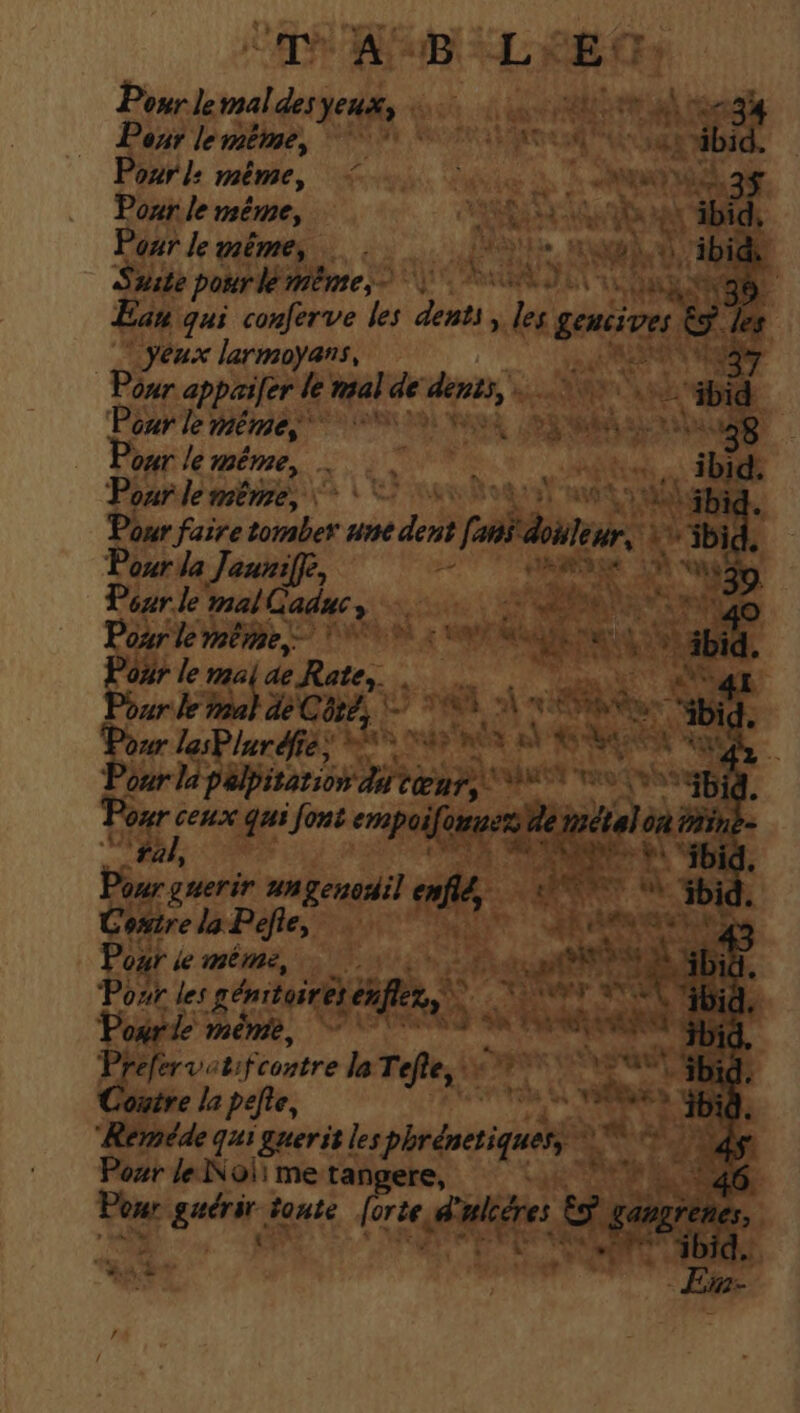 TABLE
Pour le mal des yeux, 34
Pour le même, ibid.
Pour le même, 35
Pour le même, ibid.
Pour le même, ibid.
Suite pour le même, 39
Eau qui conſerve les dents, les gencives & les
yeux larmoyans, 37
Pour appaiſer le mal de dents, ibid
Pour le même, 38
Pour le même, ibid.
Pour le même, ibid.
Pour faire tomber une dent ſans douleur, ibid.
Pour la Jauniſſe, 39
Pour le mal Caduc, 40
Pour le même, ibid.
Pour le mal de Rate, 41
Pour le mal de Côté, ibid.
Pour las Pluréſie, 42
Pour la palpitation du cœur, ibid.
Pour ceux qui ſont empoiſonnez de métal on miné-
ral, ibid.
Pour guerir un genouil enflé, ibid.
Contre la Peſte, 43
Pour le même, ibid.
Pour les génitoires enflez, ibid.
Pour le même, ibid.
Preſervatif contre la Teſte, ibid.
Contre la peſte, ibid.
Reméde qui guerit les phrénetiques, 45
Pour le Noli me tangere, 46
Pour guérir toute ſorte d'ulcéres & gangrenes,
ibid.
Em-